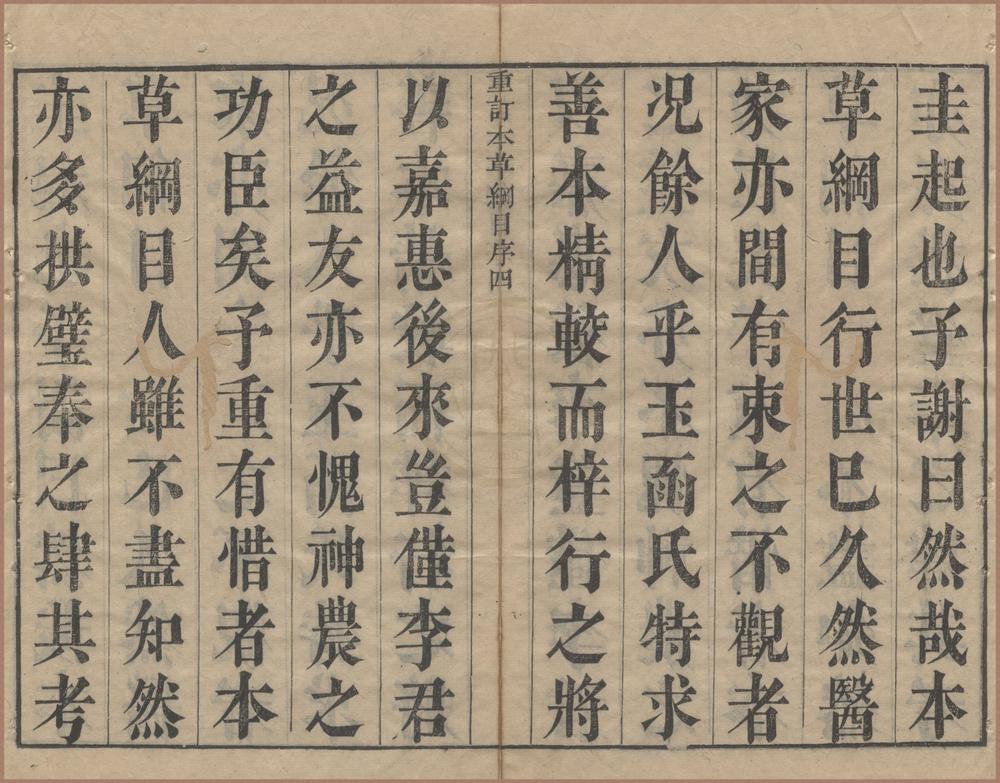 圭起也予謝曰然哉本
草綱目行世巳久然醫
家亦間有束之不觀者
况餘人乎玉函氏特求
善本精較而梓行之將
重訂本草綱目序四
以嘉惠後來豈僅李君
之益友亦不愧神農之
功臣矣予重有惜者本
草綱目人雖不盡知然
亦多拱璧奉之肆其考